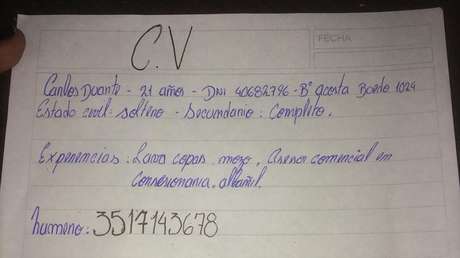 C.V
FECHA
Carlos Duarte - 21 años - DNI 40682796 - B° Acosta Boedo 1024
Estado civil: soltero - Secundario: Completo.
Experiencias: Lava copas. mozo. Asesor comercial en
Consesionaria. albañil.
humeno: 3517143678